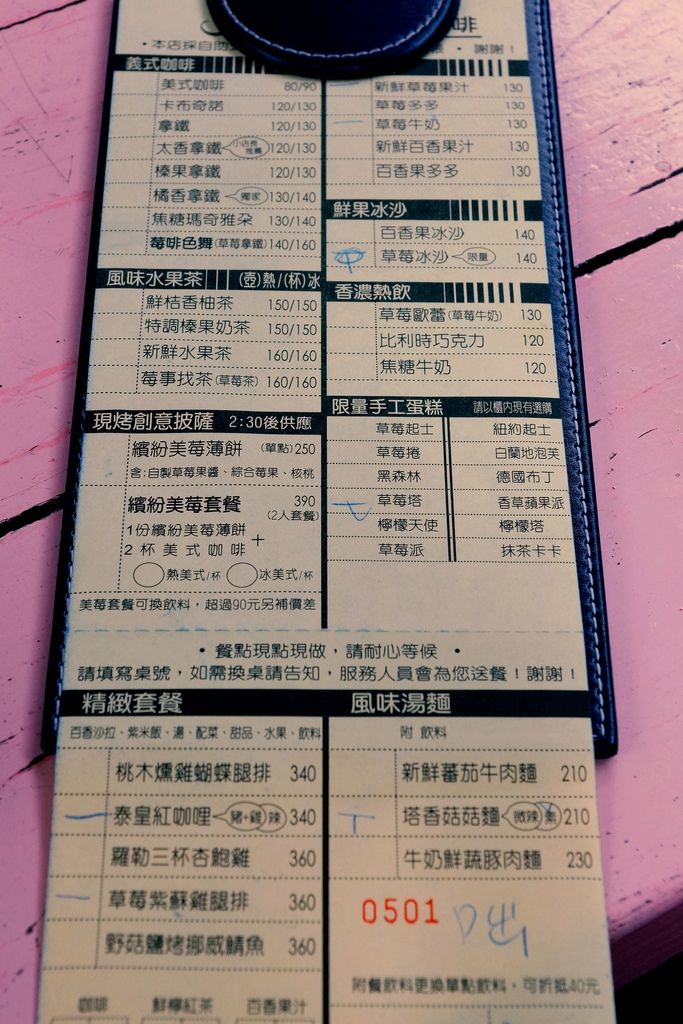 啡
•本店採自助
謝謝！
義式咖啡
美式咖啡 80/90
卡布奇諾 120/130
拿鐵 120/130
太香拿鐵 小店長推薦 120/130
榛果拿鐵 120/130
橘香拿鐵 獨家 130/140
焦糖瑪奇雅朵 130/140
莓啡色舞(草莓拿鐵) 140/160
風味水果茶 (壺)熱/(杯)冰
鮮桔香柚茶 150/150
特調榛果奶茶 150/150
新鮮水果茶 160/160
莓事找茶(草莓茶) 160/160
現烤創意披薩 2:30後供應
繽紛美莓薄餅 (單點)250
含:自製草莓果醬、綜合莓果、核桃
繽紛美莓套餐 390
(2人套餐)
1份繽紛美莓薄餅
+
2杯美式咖啡
熱美式/杯 冰美式/杯
美莓套餐可換飲料，超過90元另補價差
新鮮草莓果汁 130
草莓多多 130
草莓牛奶 130
新鮮百香果汁 130
百香果多多 130
鮮果冰沙
百香果冰沙 140
草莓冰沙 限量 140
香濃熱飲
草莓歐蕾(草莓牛奶) 130
比利時巧克力 120
焦糖牛奶 120
限量手工蛋糕 請以櫃內現有選購
草莓起士 紐約起士
草莓捲 白蘭地泡芙
黑森林 德國布丁
草莓塔 香草蘋果派
檸檬天使 檸檬塔
草莓派 抹茶卡卡
•餐點現點現做，請耐心等候•
請填寫桌號，如需換桌請告知，服務人員會為您送餐！謝謝！
精緻套餐
百香沙拉、紫米飯、湯、配菜、甜品、水果、飲料
桃木燻雞蝴蝶腿排 340
泰皇紅咖哩 豬+雞 辣 340
羅勒三杯杏鮑雞 360
草莓紫蘇雞腿排 360
野菇鹽烤挪威鯖魚 360
咖啡 鮮檸紅茶 百香果汁
風味湯麵
附 飲料
新鮮蕃茄牛肉麵 210
塔香菇菇麵 微辣 素 210
牛奶鮮蔬豚肉麵 230
0501
附餐飲料更換單點飲料，可折抵40元